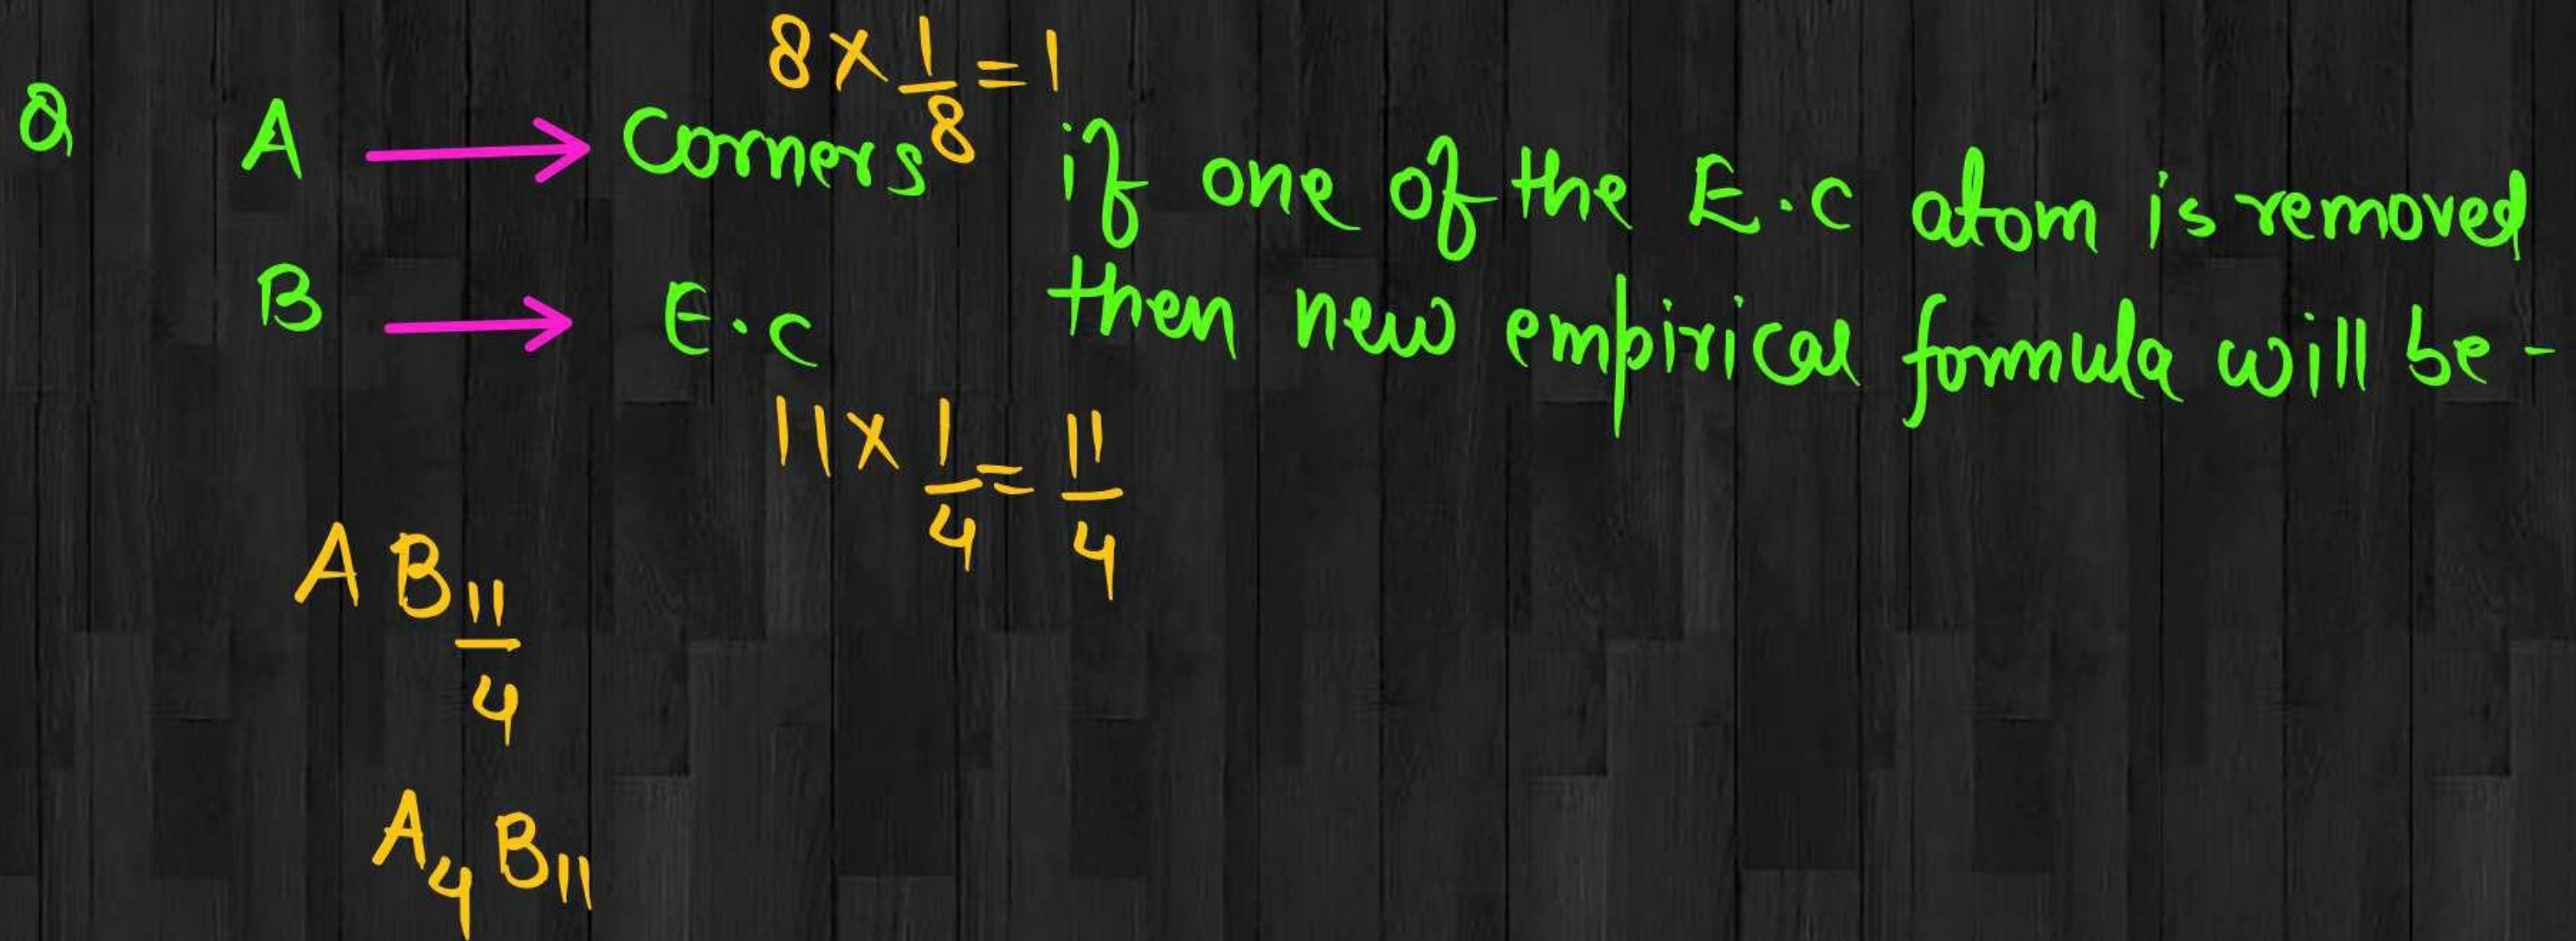 8 × 1/8 = 1
Q A → Corners if one of the E.C atom is removed
B → E.C then new empirical formula will be -
11 × 1/4 = 11/4
A B 11/4
A4 B11